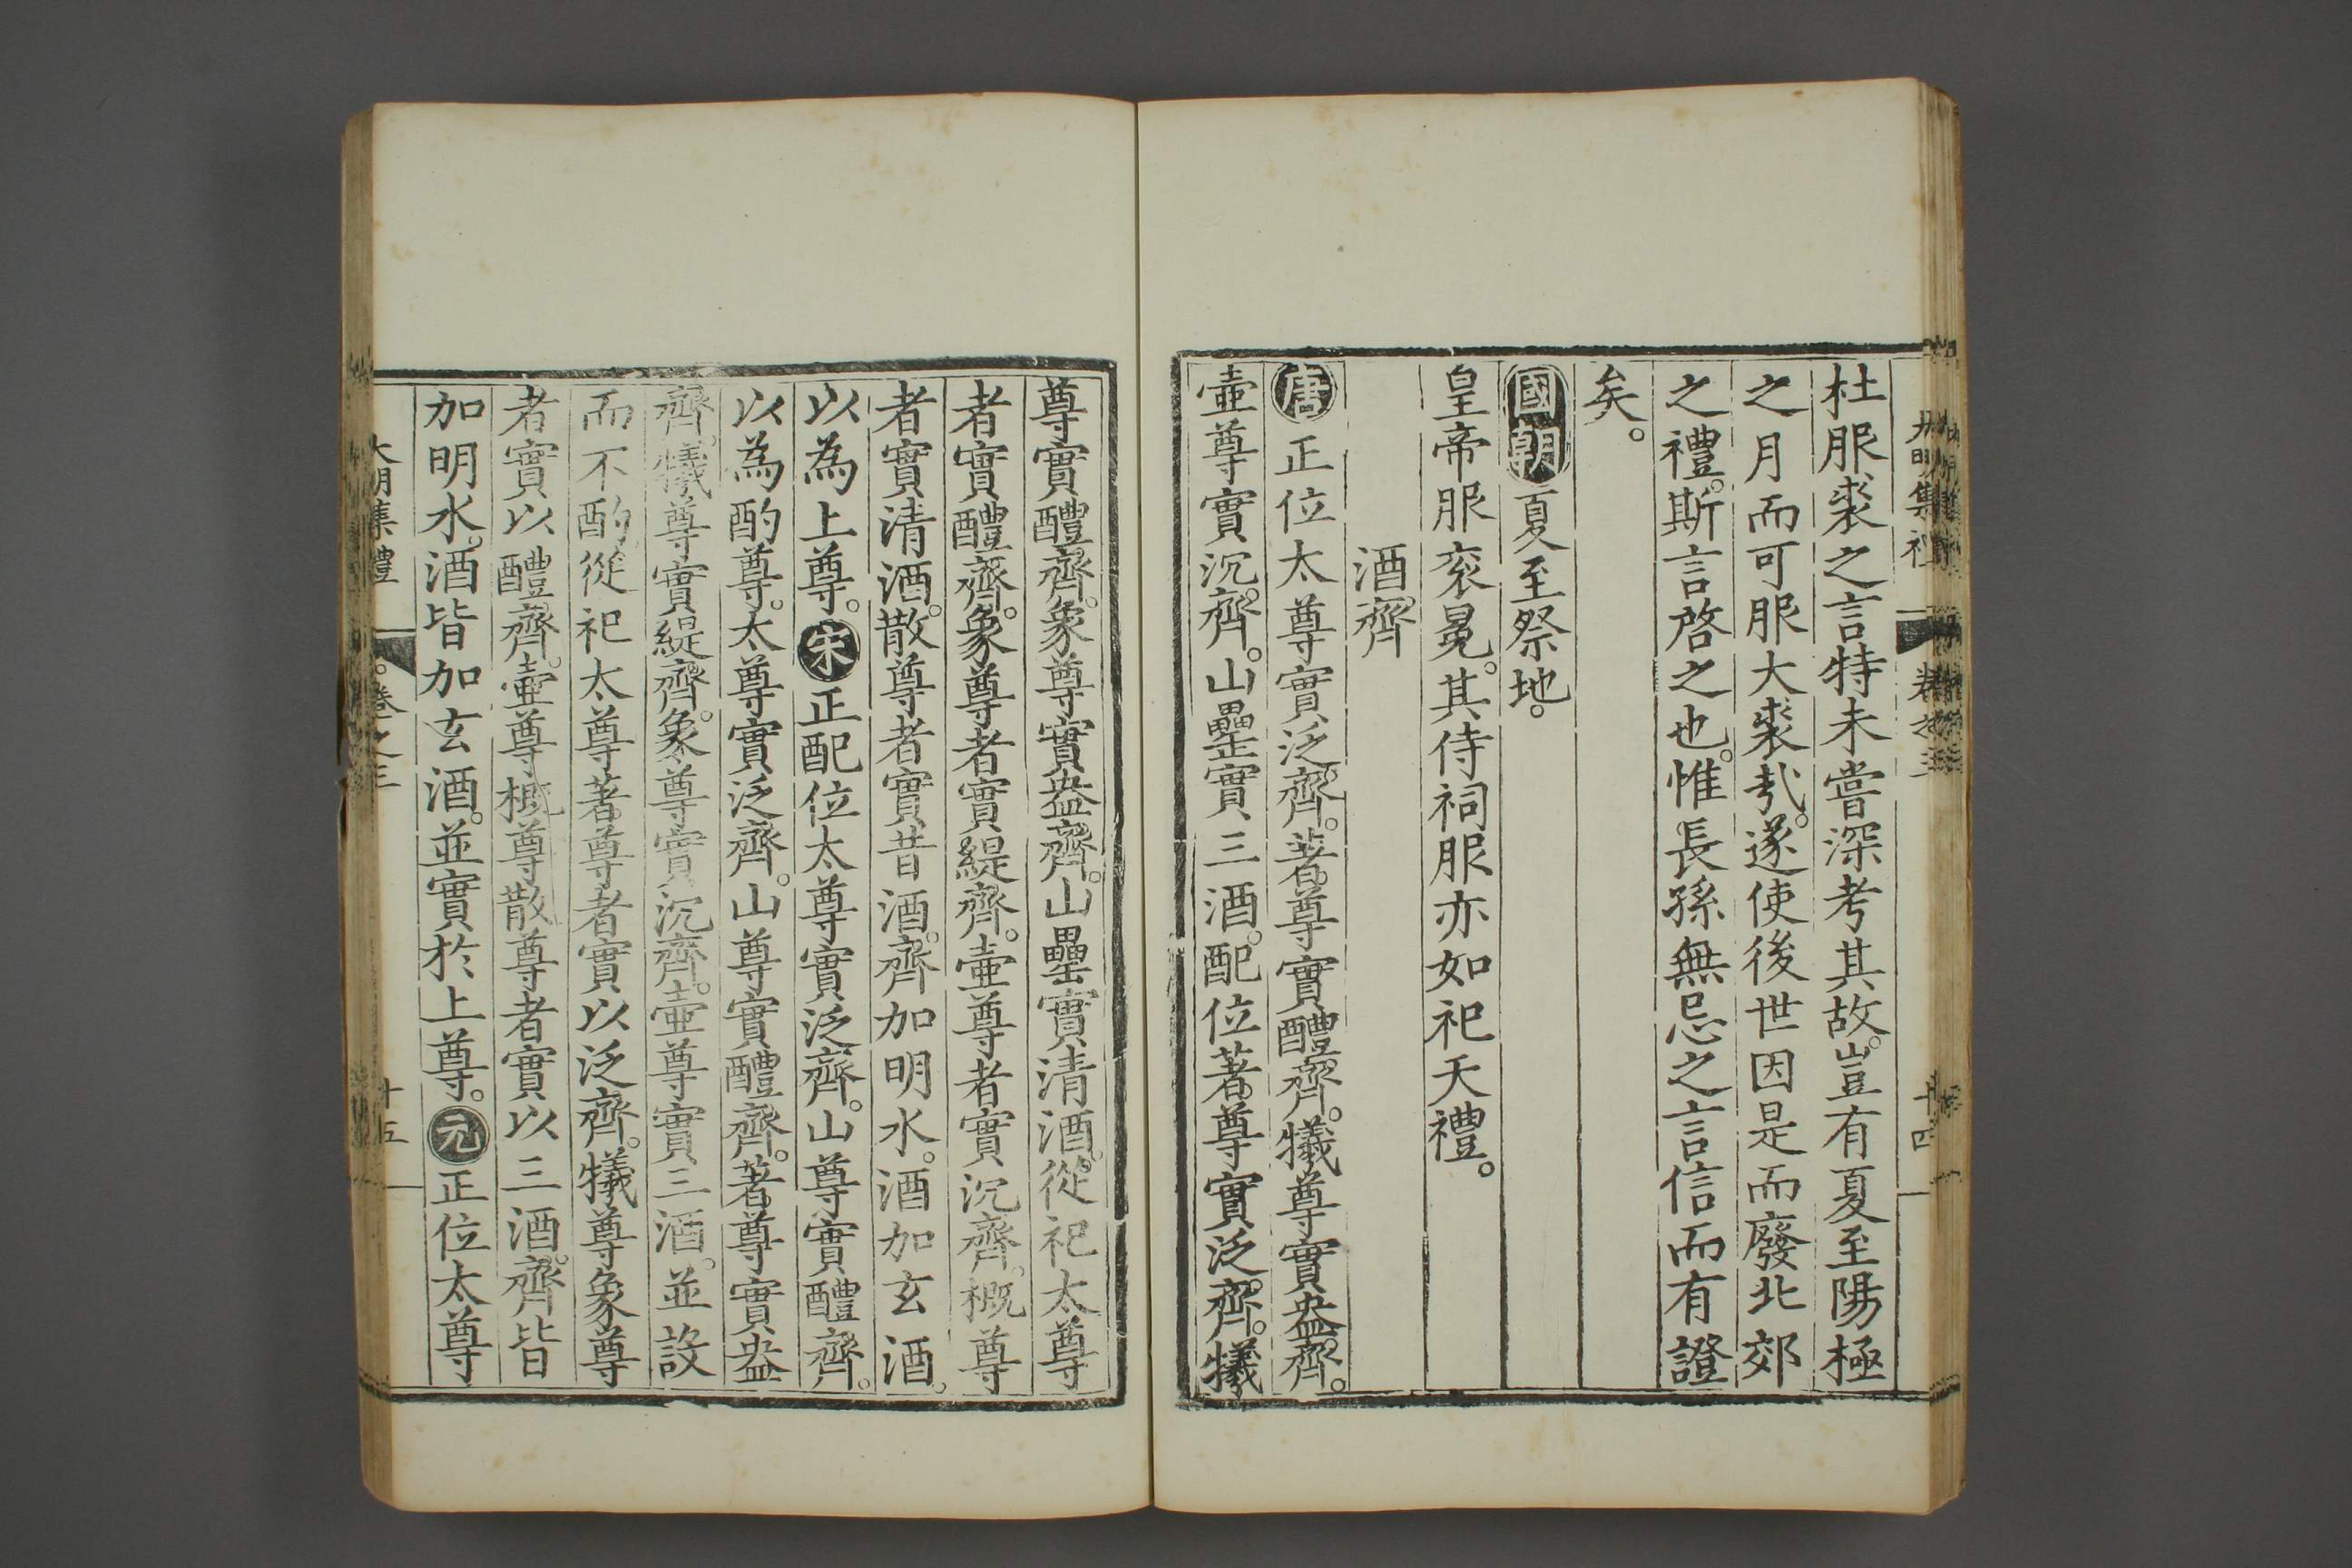 杜服裘之言特未嘗深考其故。豈有夏至陽極
之月而可服大裘㢤。遂使後世因是而廢北郊
之禮。斯言啓之也。惟長孫無忌之言信而有證
矣。
國朝夏至祭地。
皇帝服衮冕。其侍祠服亦如祀天禮。
酒齊
唐正位太尊實泛齊。著尊實醴齊。犧尊實盎齊。
壷尊實沉齊。山罍實三酒。配位著尊實泛齊。犧
尊實醴齊。象尊實盎齊。山罍實清酒。從祀太尊
者實醴齊。象尊者實緹齊。壷尊者實沉齊。概尊
者實清酒。散尊者實昔酒。齊加明水。酒加玄酒。
以為上尊。宋正配位太尊實泛齊。山尊實醴齊。
以為酌尊。太尊實泛齊。山尊實醴齊。著尊實盎
齊。犧尊實緹齊。象尊實沉齊。壷尊實三酒。並設
而不酌。從祀太尊著尊者實以泛齊。犧尊象尊
者實以醴齊。壷尊概尊散尊者實以三酒。齊皆
加明水。酒皆加玄酒。並實於上尊。元正位太尊
大明集禮 卷之三 十五